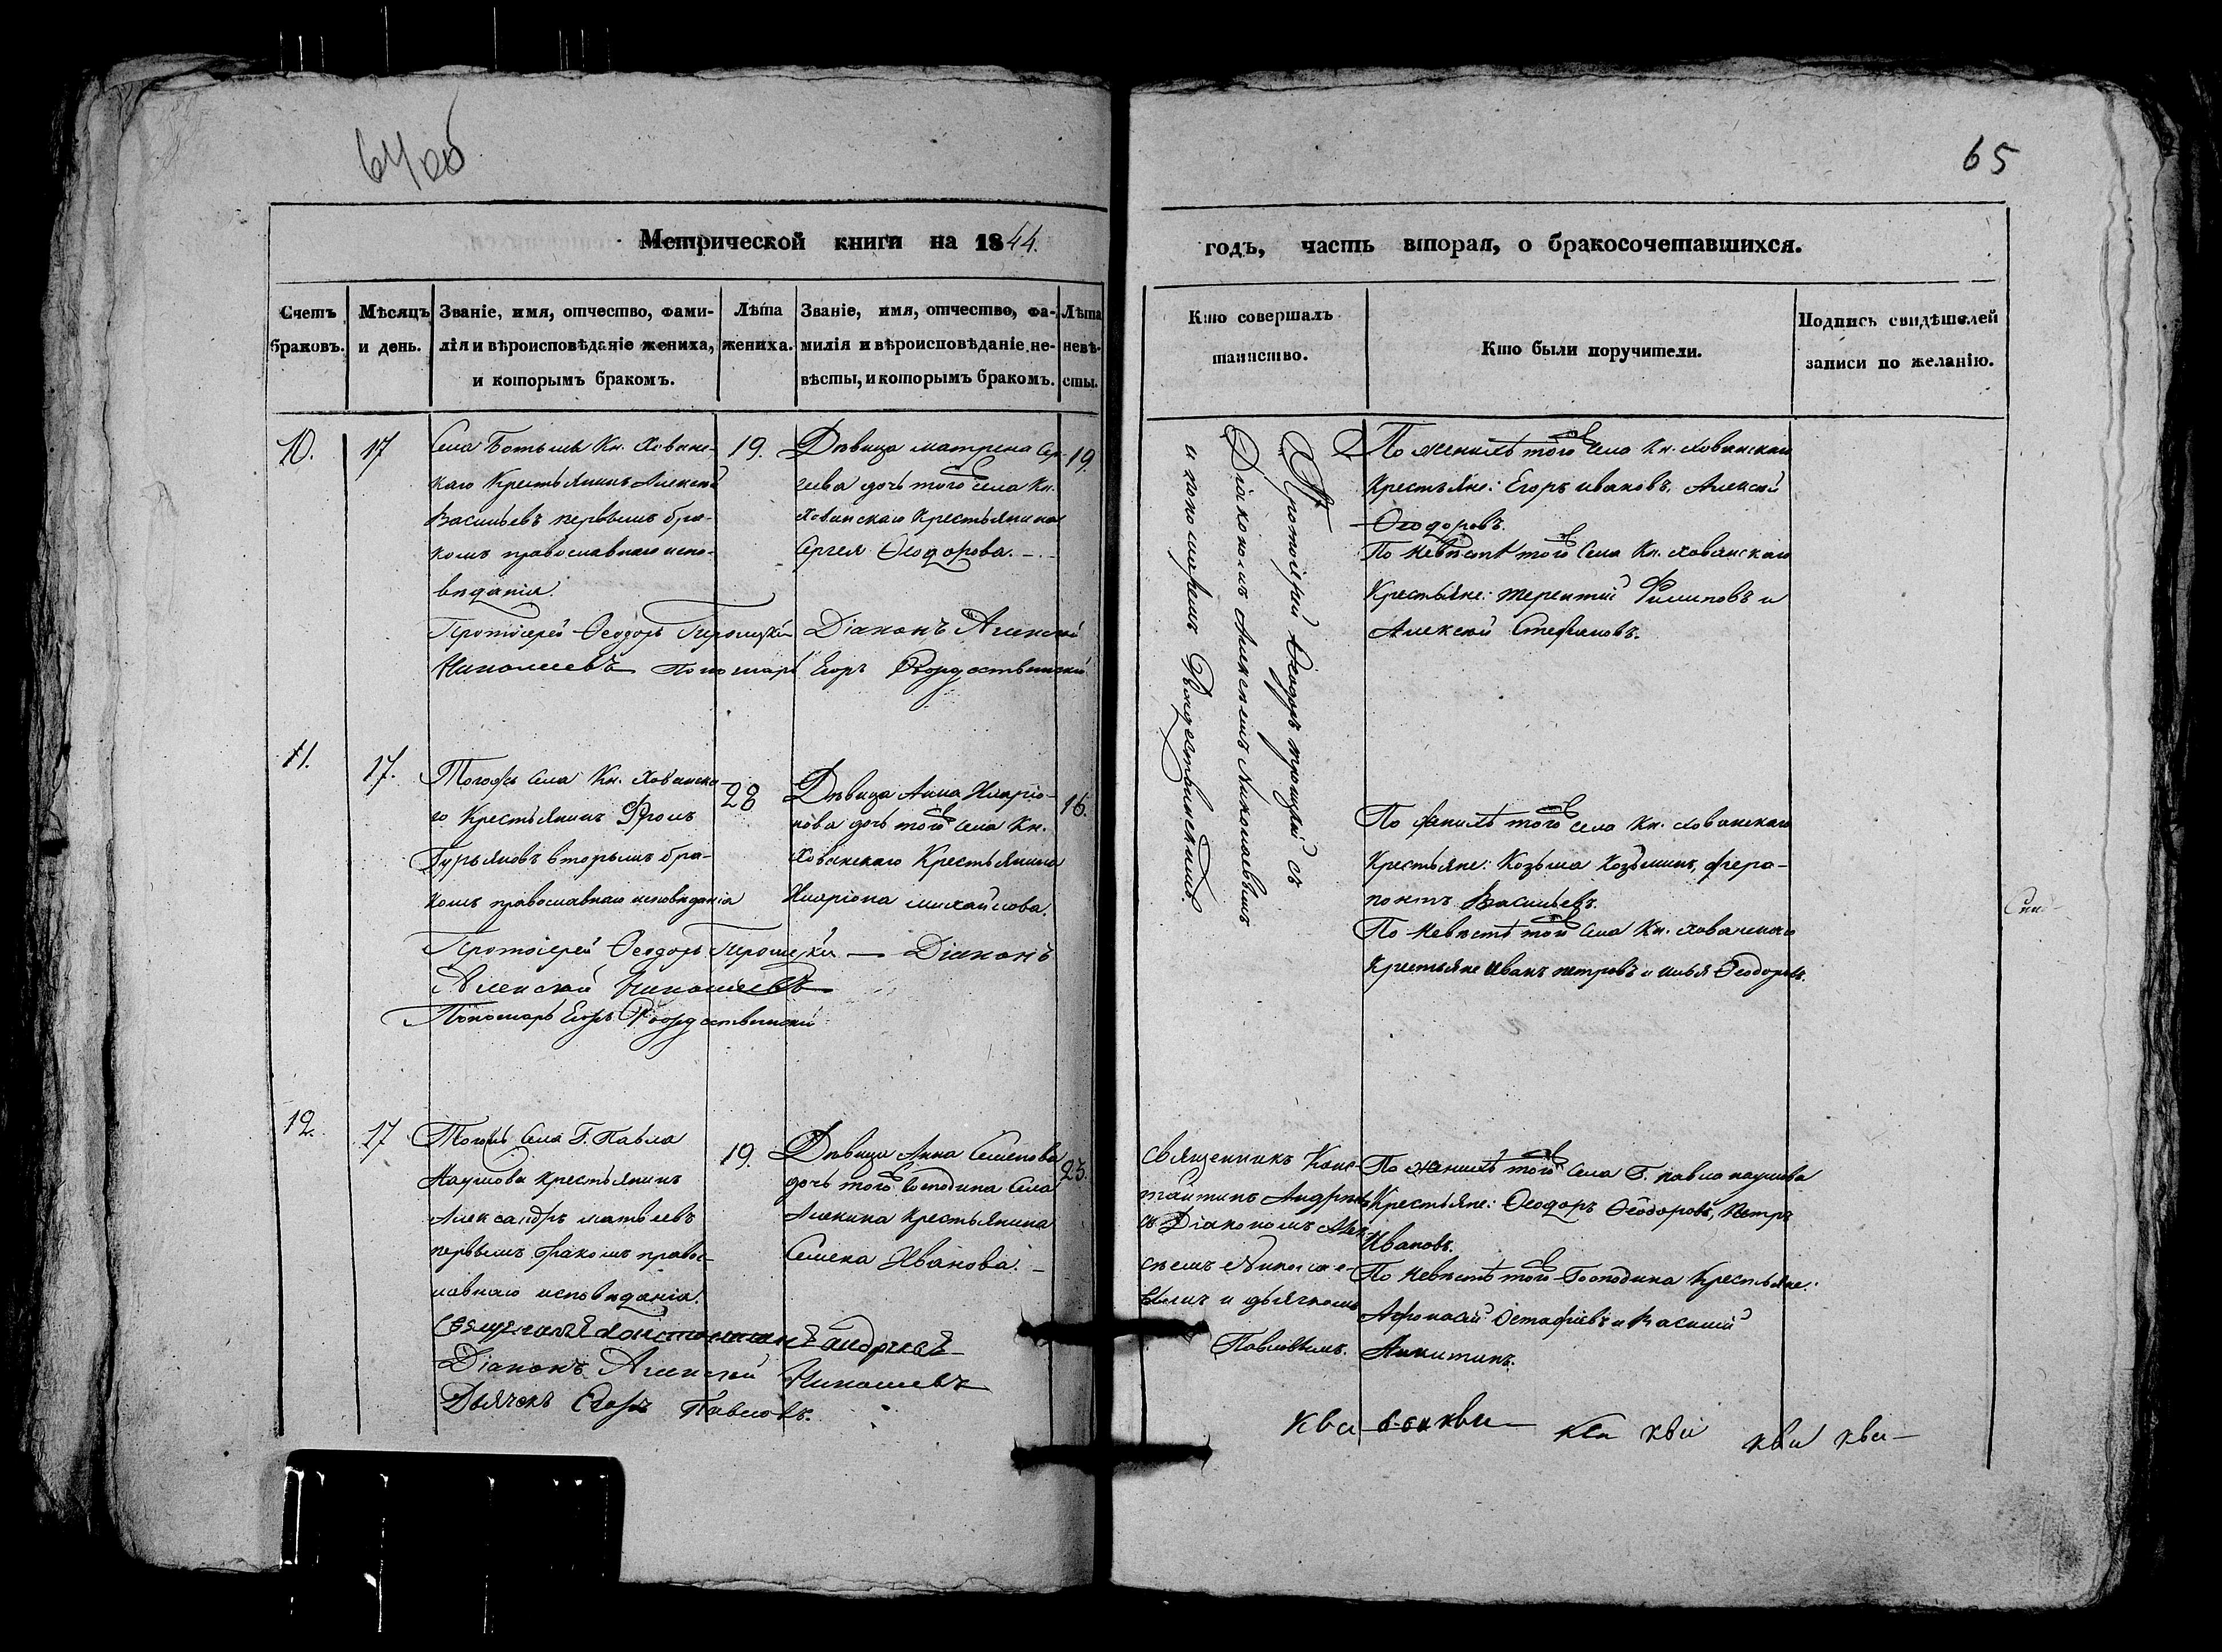 64об
Метрической книги на 1844.
Счетъ браковъ.
Мѣсяцъ и день.
Званіе, имя, отчество, фами-
лія и вѣроисповѣданіе жениха,
и которымъ бракомъ.
Лѣта
жениха.
Званіе, имя, отчество, фа-
милія и вѣроисповѣданіе не-
вѣсты, и которымъ бракомъ.
Лѣта
невѣ-
сты.
10.
17
Села Кн. Хованс-
каго Крестьянинъ Алексѣй
Васильевъ первымъ бра-
комъ православнаго испо-
вѣданія.
19.
Дѣвица Матрена Сер-
геева дочь того Села Кн.
Хованскаго Крестьянина
Сергея Ѳеодорова.
19
Протоіерей Ѳеодоръ Троицкій Діаконъ Алексѣй
Николаевъ Пономарь Егоръ Рождественскій
11.
17.
Тогожъ Села Кн. Хованска-
го Крестьянинъ
Гурьяновъ вторымъ бра-
комъ православнаго исповѣданія
28
Дѣвица Анна Иларіо-
нова дочь того Села Кн.
Хованскаго Крестьянина
Иларіона Михайлова.
16.
Протоіерей Ѳеодоръ Троицкій — Діаконъ
Алексѣй Николаевъ
Пономарь Егоръ Рождественскій
12.
17
Тогожъ Села Г. Павла
Наумова Крестьянинъ
Александръ Матвеевъ
первымъ бракомъ правос-
лавнаго исповѣданія.
19.
Дѣвица Анна Семенова
дочь того Господина Села
Крестьянина
Семена Иванова.
23.
Священникъ Константинъ Андреевъ
Діаконъ Алексѣй Николаевъ
Дьячокъ Егоръ Павловъ.
65
годъ, часть вторая, о бракосочетавшихся.
Кто совершалъ
таинство.
Кто были поручители.
Подпись свидѣтелей
записи по желанію.
Протоіерей Ѳеодоръ Троицкій съ
Діакономъ Алексѣемъ Николаевымъ
и пономаремъ Рождественскимъ.
По женихѣ того Села Кн. Хованскаго
Крестьяне: Егоръ Ивановъ, Алексѣй
Ѳеодоровъ.
По невѣстѣ того Села Кн. Хованскаго
Крестьяне: Терентій Филиповъ и
Алексѣй Стефановъ.
По женихѣ того Села Кн. Хованскаго
Крестьяне: Козьма Козьминъ, Фера-
понтъ Васильевъ.
По невѣстѣ того Села Кн. Хованскаго
Крестьяне Иванъ Петровъ и Илья Ѳеодоровъ.
Священникъ Конс-
тантинъ Андреевъ
съ Діакономъ Алек-
сѣемъ Николае-
вымъ и дьячкомъ
Павловымъ.
По женихѣ того Села Г. Павла Наумова
Крестьяне: Ѳеодоръ Ѳеодоровъ, Петръ
Ивановъ.
По невѣстѣ того Господина Крестьяне:
Афонасій Остафіевъ и Василій
Никитинъ.